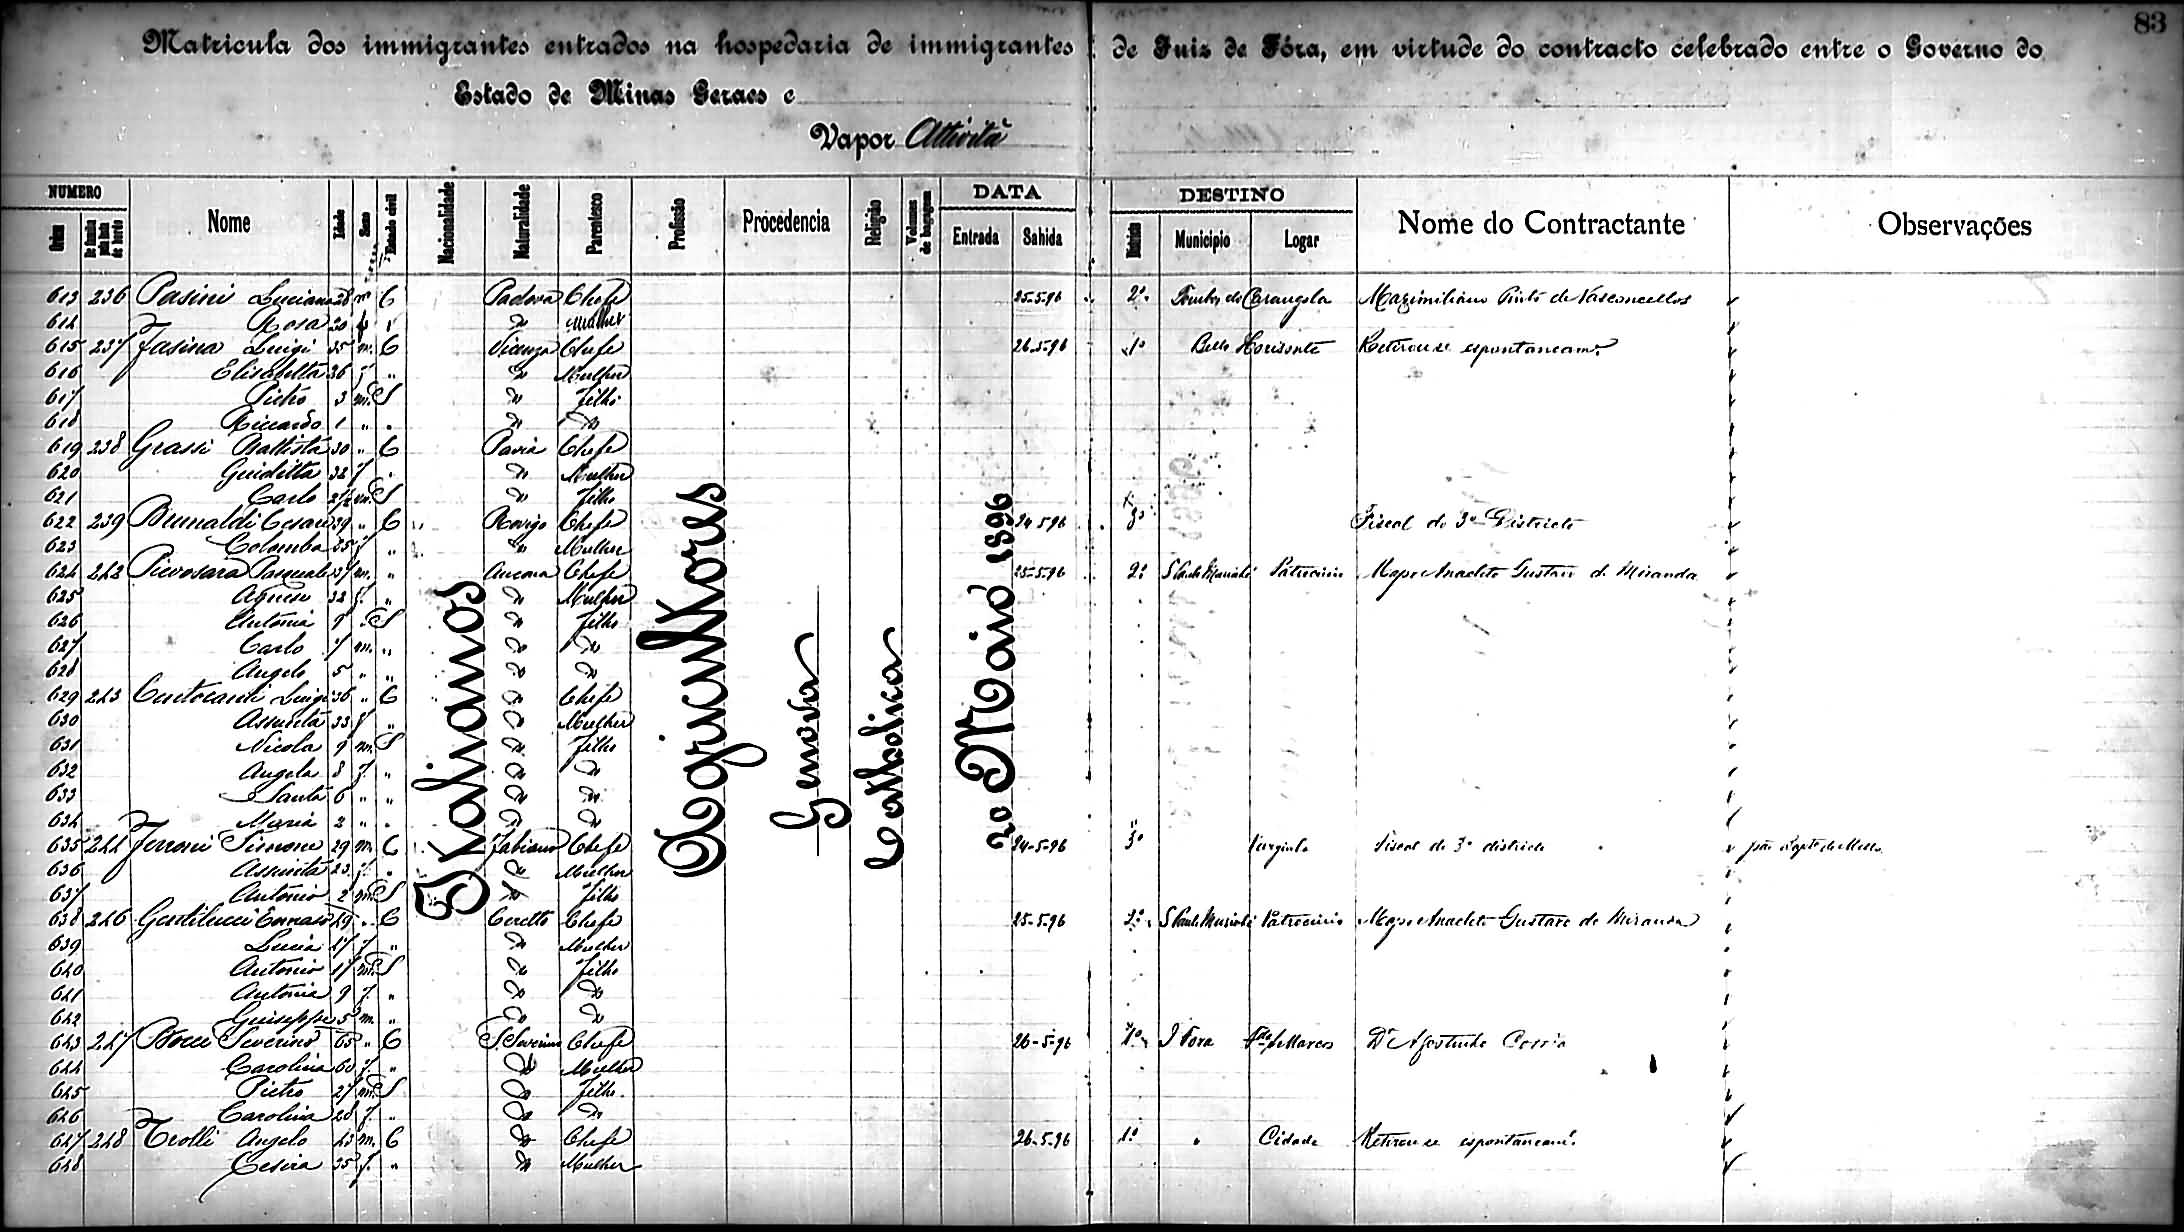 83
Matricula dos immigrantes entrados na hospedaria de immigrantes de Juiz de Fóra, em virtude do contracto celebrado entre o Governo do
Estado de Minas Geraes e
Vapor Attivitá
NUMERO Nome Idade Sexo Estado civil Nacionalidade Naturalidade Parentesco Profissão Procedencia Religião Volumes de bagagem DATA DESTINO Nome do Contractante Observações
Ordem De familia pela lista de bordo Entrada Sahida Districto Municipio Logar
Italianos Agricultores Genova Catholica 20 Maio 1896
613 236 Pasini Luciano 28 m C Padova Chefe 25-5-96 2º Tombos do Carangola Maximiliano Pinto de Vasconcellos
614 Rosa 20 f " " Mulher
615 237 Fasina Luigi 35 m. C Vicenza Chefe 26-5-96 1º Bello Horisonte Retirou se espontaneamᵉ
616 Elisabetta 36 f. " " Mulher
617 Pietro 3 m. S " Filho
618 Riccardo 1 " " " "
619 238 Grassi Battista 30 " C Pavia Chefe
620 Guiditta 32 f. " " Mulher
621 Carlo 2 1/2 m. S " Filho
622 239 Brunaldi Cesare 39 " C Rovigo Chefe 24-5-96 3º Fiscal do 3º Districto
623 Colomba 35 f " " Mulher
624 242 Pasquale 37 m. " Ancona Chefe 25-5-96 2º S Paulo Muriahé Patrocinio Major Anacleto Gustavo d. Miranda
625 Agnese 32 f. " " Mulher
626 Antonia 9 " S " Filho
627 Carlo 7 m. " " "
628 Angelo 5 " " " "
629 243 Luigi 36 " C " Chefe
630 Assunta 33 f. " " Mulher
631 Nicola 9 m. S " Filho
632 Angela 8 f. " " "
633 Santa 6 " " " "
634 Maria 2 " " " "
635 244 Ferroni Simone 29 m. C Fabiano Chefe 24-5-96 3º Varginha Fiscal do 3º districto
636 Assunta 23 f. " " Mulher
637 Antonio 2 m. S " Filho
638 246 Gentilucci 49 " C Ceretto Chefe 25-5-96 2º S Paulo Muriahé Patrocinio Major Anacleto Gustavo de Miranda
639 Lucia 47 f. " " Mulher
640 Antonio 17 m. S " Filho
641 Antonia 9 f. " " "
642 Guiseppe 5 m. " " "
643 247 Bocci Severino 65 " C S. Severino Chefe 26-5-96 1º J Fora Dr Agostinho Corrêa
644 Carolina 60 f. " " Mulher
645 Pietro 27 m. S " Filho.
646 Carolina 28 f " " "
647 248 Trolli Angelo 43 m. C " Chefe 26-5-96 1º " Cidade Retirou se espontaneamᵉ
648 Cesira 35 f. " " Mulher